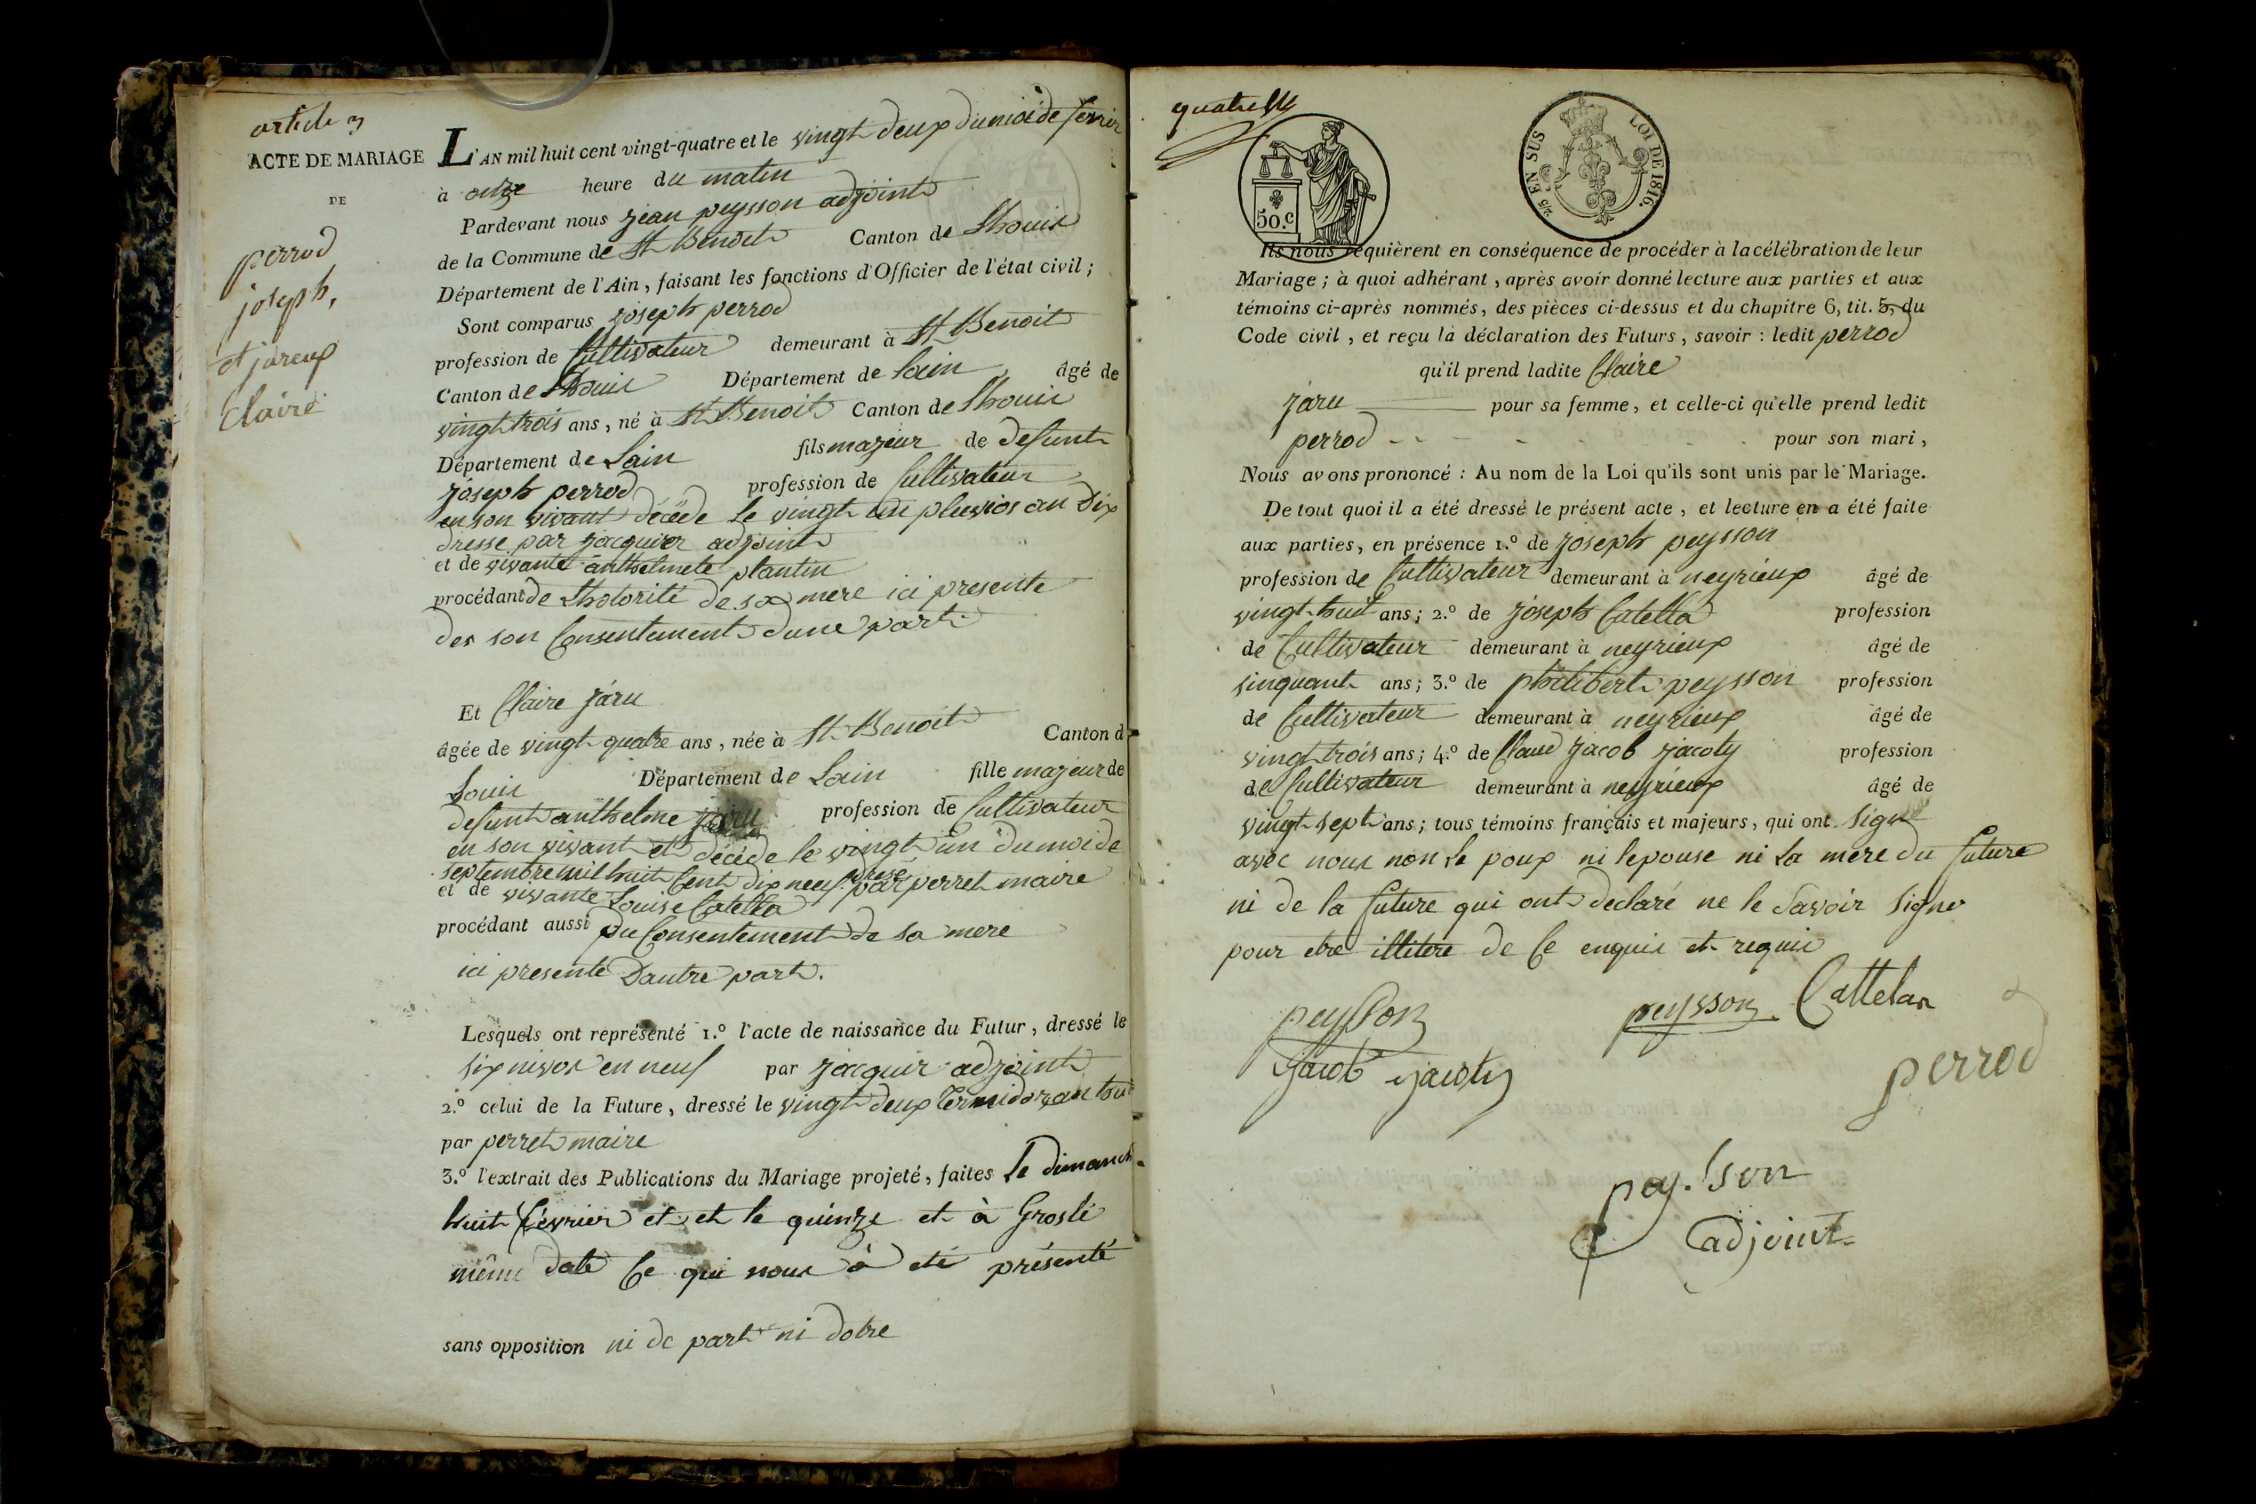 article 3
ACTE DE MARIAGE
DE
perrod
joseph,
et jareux
Claire
L'AN mil huit cent vingt-quatre et le vingt deux du moi de fevrier
à onze heure du matin
Pardevant nous jean peysson adjoint
de la Commune de St Benoit Canton de Lhouis
Département de l'Ain, faisant les fonctions d'Officier de l'état civil;
Sont comparus joseph perrod
profession de Cultivateur demeurant à St Benoit
Canton de Lhouis Département de Lain âgé de
vingt trois ans, né à St Benoit Canton de Lhouis
Département de Lain fils majeur de defunt
joseph perrod profession de Cultivateur
en son vivant décéde le vingt un pluvios an dix
dresse par jacquier adjoint
et de vivante anthelmete plantin
procédant de Lhotorité de sa mere ici presente
der son Consentement dune part
Et Claire jaru
âgée de vingt quatre ans, née à St Benoit Canton d
Louis Département de Lain fille majeur de
defunt anthelme jaru profession de Cultivateur
en son vivant et décéde le vingt un du moi de
septembre mil huit Cent dix neuf dresé par perret maire
et de vivante Louise Catella
procédant aussi du Consentement de sa mere
ici presente Dautre part.
Lesquels ont représenté 1.º l'acte de naissance du Futur, dressé le
six nivos en neuf par jacquir adjoint
2.º celui de la Future, dressé le vingt deux termidor an huit
par perret maire
3.º l'extrait des Publications du Mariage projeté, faites le dimanch
huit fevrier et et le quinze et à Groslé
même date Ce qui nous à eté présenté
sans opposition ni de part ni dotre
quatre
50.c
2/5 EN SUS LOI DE 1816.
Ils nous requièrent en conséquence de procéder à la célébration de leur
Mariage; à quoi adhérant, après avoir donné lecture aux parties et aux
témoins ci-après nommés, des pièces ci-dessus et du chapitre 6, tit. 5, du
Code civil, et reçu la déclaration des Futurs, savoir : ledit perrod
qu'il prend ladite Claire
jaru pour sa femme, et celle-ci qu'elle prend ledit
perrod pour son mari,
Nous avons prononcé : Au nom de la Loi qu'ils sont unis par le Mariage.
De tout quoi il a été dressé le présent acte, et lecture en a été faite
aux parties, en présence 1.º de joseph peysson
profession de Cultivateur demeurant à neyrieux âgé de
vingt huit ans; 2.º de joseph Catella profession
de Cultivateur demeurant à neyrieux âgé de
sinquant ans; 3.º de philibert peysson profession
de Cultivateur demeurant à neyrieux âgé de
vingt trois ans; 4.º de Claud jacob jacoty profession
de Cultivateur demeurant à neyrieux âgé de
vingt sept ans; tous témoins français et majeurs, qui ont signé
avec nous non le poux ni lepouse ni la mere du future
ni de la future qui ont declaré ne le savoir signer
pour etre illitere de Ce enquis et requis
peysson peysson Cattelan
Jacob jacoty perrod
peysson
adjoint